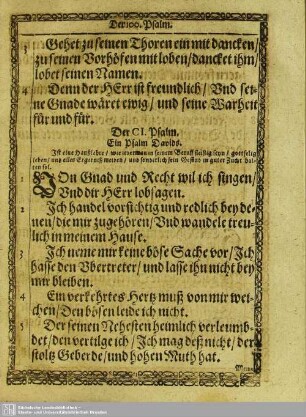 Der 100. Psalm.
3 Gehet zu seinen Thoren ein mit dancken/
zu seinen Vorhöfen mit loben/ dancket ihm/
lobet seinen Namen.
4 Denn der HErr ist freundlich/ Vnd sei-
ne Gnade wäret ewig/ und seine Warheit
für und für.
Der CI. Psalm.
Ein Psalm Davids.
Ist eine Hauslehre/ wie man in seinem Beruff fleissig seyn/ gottselig
leben/ und alles Ergernüs meiden/ und sonderlich sein Gesind in guter Zucht hal-
ten sol.
1 VOn Gnad und Recht wil ich singen/
Vnd dir HErr lobsagen.
2 Ich handel vorsichtig und redlich bey de-
nen/ die mir zugehören/ Vnd wandele treu-
lich in meinem Hause.
3 Ich neme mir keine böse Sache vor/ Ich
hasse den Vbertreter/ und lasse ihn nicht bey
mir bleiben.
4 Ein verkehrtes Hertz muß von mir wei-
chen/ Den bösen leide ich nicht.
5 Der seinen Nehesten heimlich verleumb-
det/ den vertilge ich/ Ich mag deß nicht/ der
stoltz Geberde/ und hohen Muth hat.